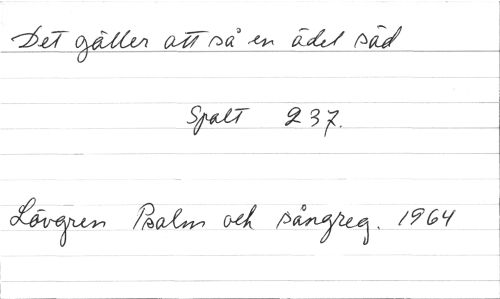 Det gäller att så en ädel säd
Spalt 237.
Lövgren Psalm och sångreg. 1964